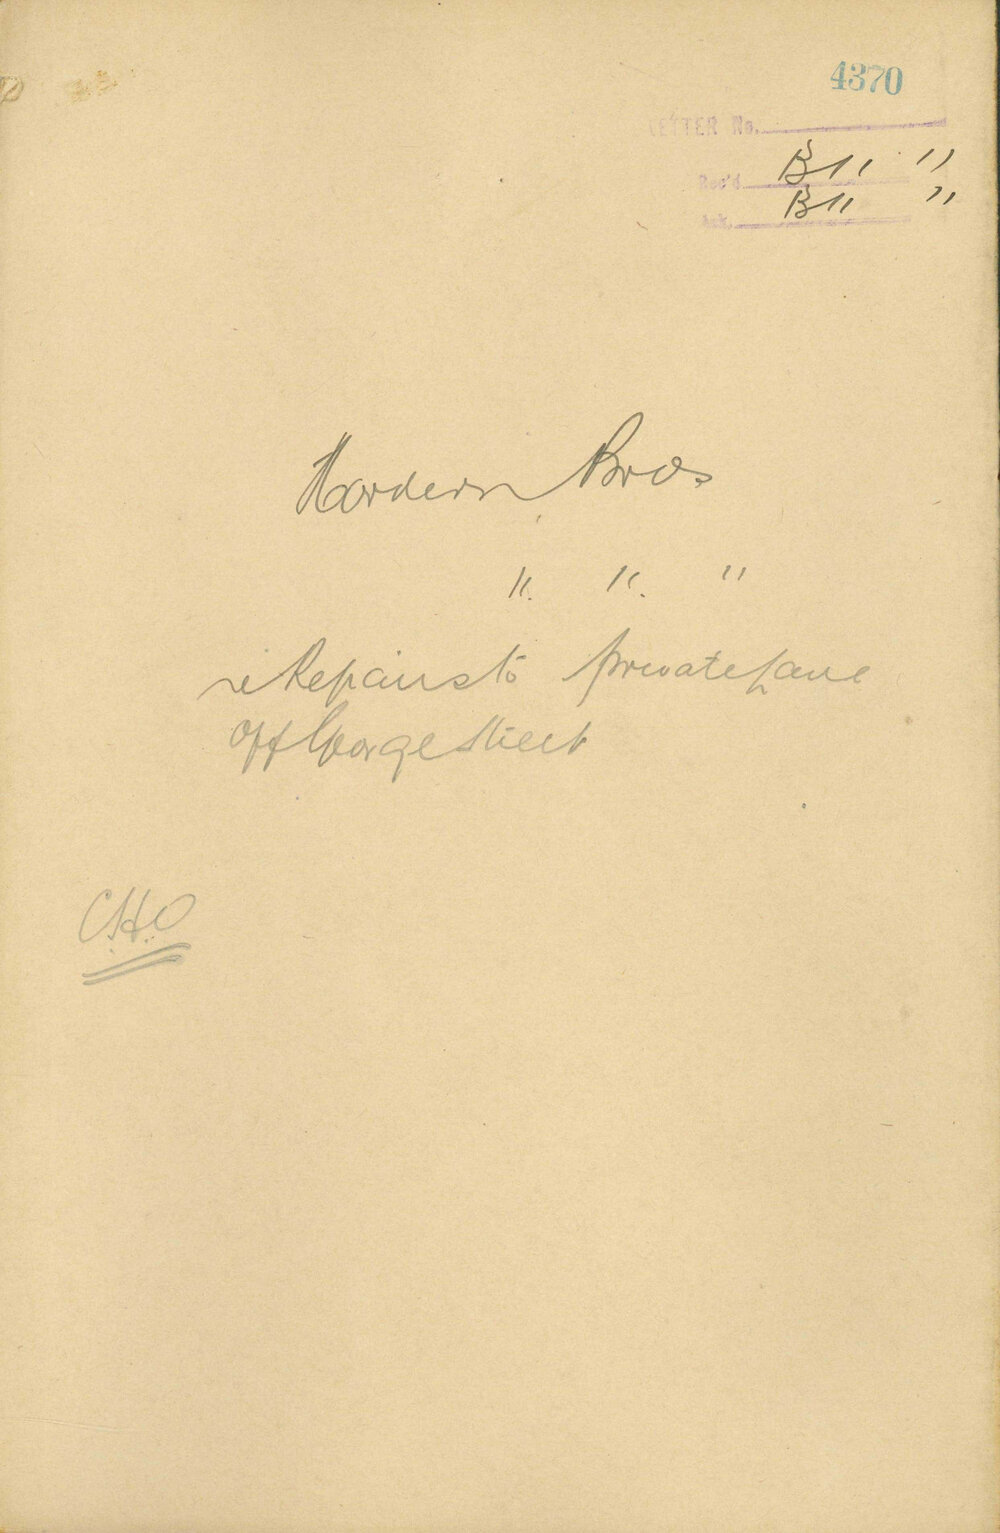 4370
LETTER No.
Rec'd B 11 "
Ack. B 11 "
Hordern Bros
" " "
re Repairs to private Lane
off George Street
C.H.O